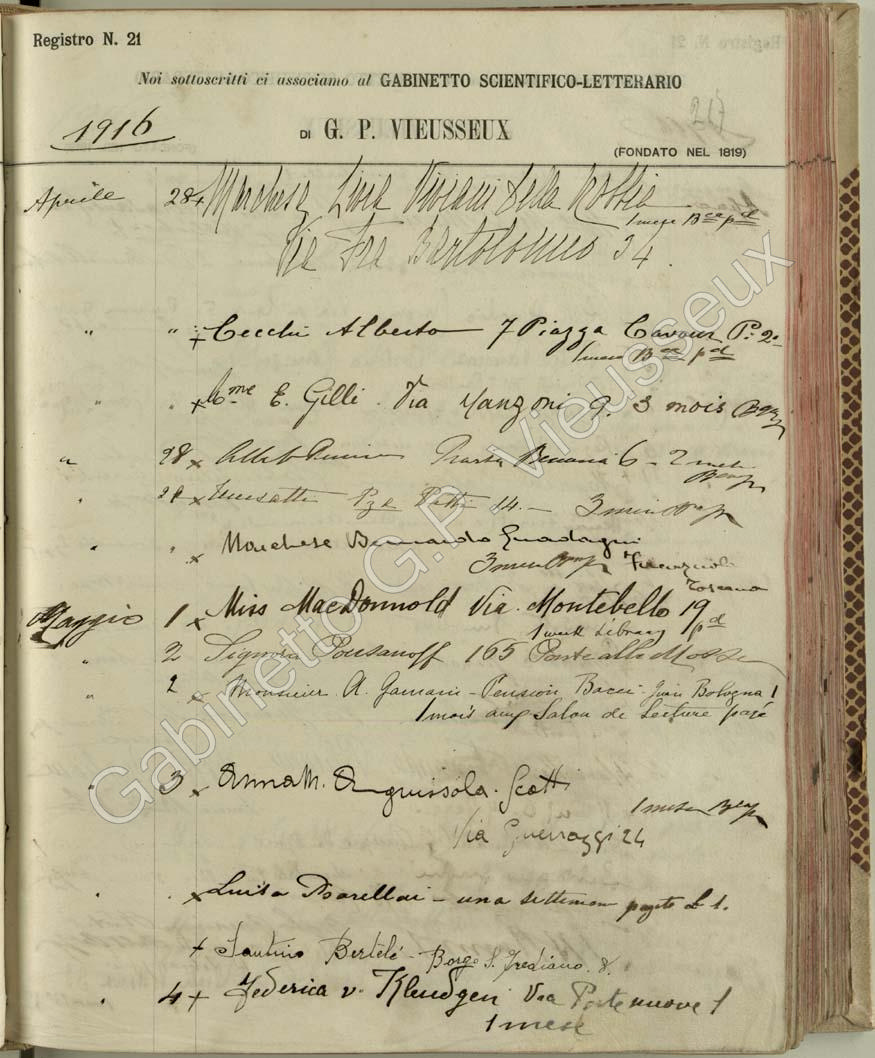 Registro N. 21
Noi sottoscritti ci associamo al GABINETTO SCIENTIFICO-LETTERARIO
1916
DI G. P. VIEUSSEUX
(FONDATO NEL 1819)
Aprile 28 + Marchesa Livia Viviani della Robbia
1 mese Bca pd
Via Fra Bartolomeo 34.
" " + Cecchi Alberto 7 Piazza Cavour P. 2o
1 mese Bca pd
" " x Mme E. Gilli. Via Manzoni 9. 3 mois
" 28 x 6 - 2 mesi
" 28 x Pza Pitti 14. - 3 mesi
" " x Marchese Bernardo Guadagni
3 mesi
Toscana
Maggio 1 x Miss MacDonnold Via Montebello 19
1 week Library pd
" 2 Signora Pousanoff 165 Ponte alle Mosse
" 2 x Monsieur A. - Pension Bacci - Gian Bologna 1
1 mois aux Salon de Lecture payé
" 3 x Anna M. Anguissola-Scotti
1 mese
Via Guerrazzi 24
" " x Luisa - una settimana pagato L 1.
+ Santino Bertelé - Borgo S. Frediano 8.
" 4 + Federica v. Kleudgen Via Porte nuove 1
1 mese
Gabinetto G.P. Vieusseux